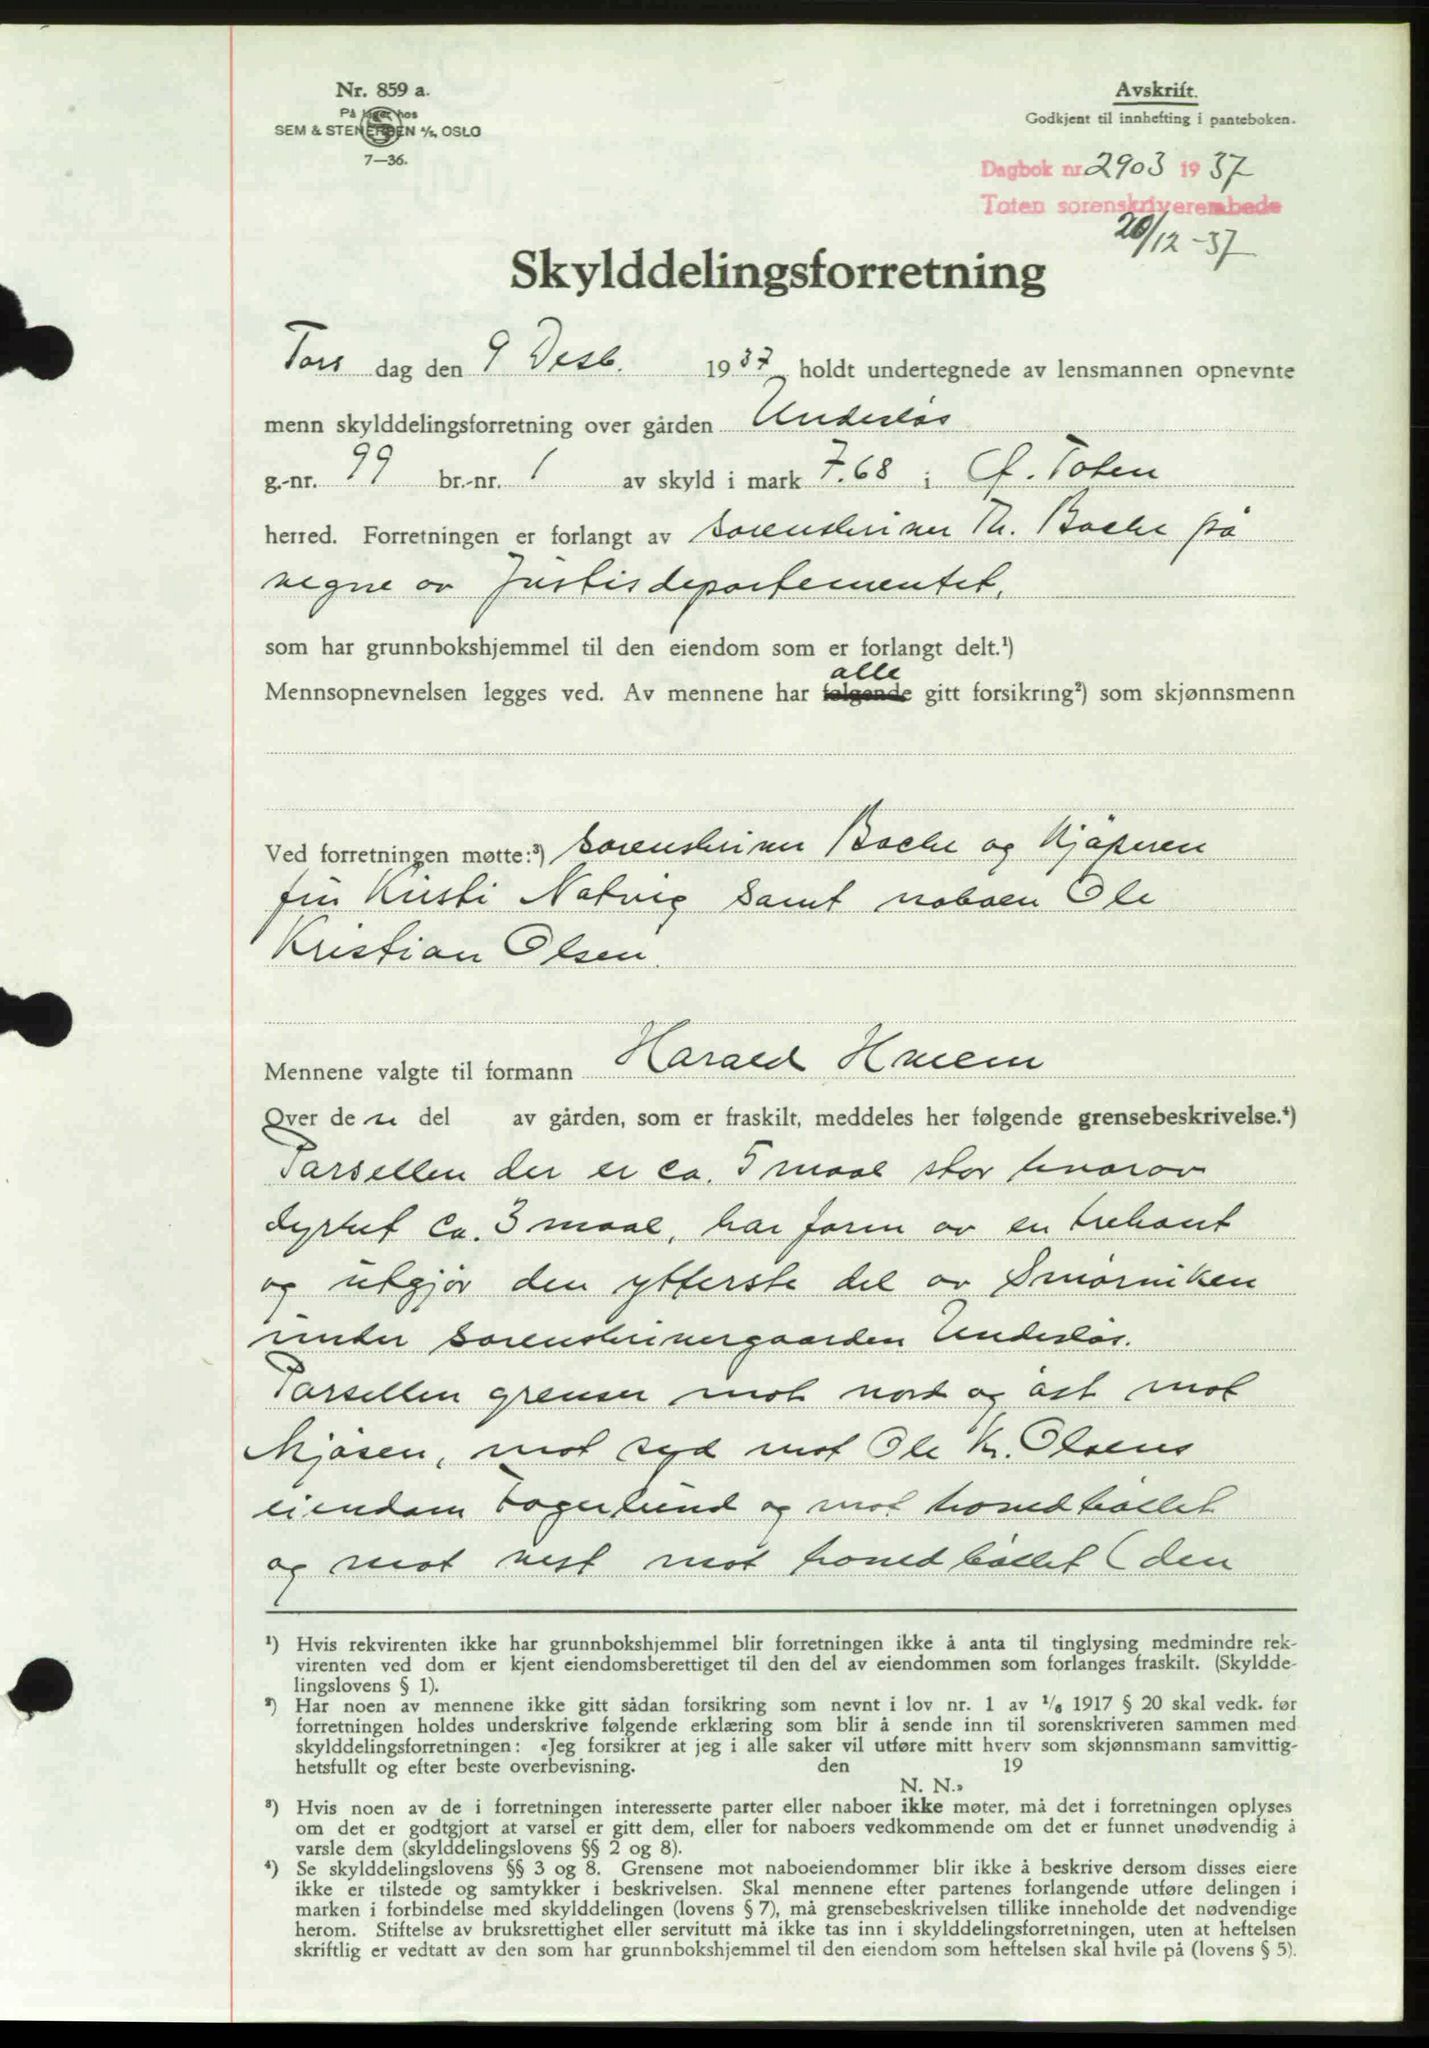 Nr. 859 a.
På lager hos
SEM & STENERSEN A/S, OSLO
7—36.
Avskrift.
Godkjent til innhefting i panteboken.
Dagbok nr. 2903 1937
Toten sorenskriverembede
20/12-37
Skylddelingsforretning
Tors dag den 9 Desb. 1937 holdt undertegnede av lensmannen opnevnte
menn skylddelingsforretning over gården Undesløs
g.-nr. 99 br.-nr. 1 av skyld i mark 7.68 i Ø. Toten
herred. Forretningen er forlangt av sorenskriver Th. Bache på
vegne av Justisdepartementet,
som har grunnbokshjemmel til den eiendom som er forlangt delt.¹)
alle
Mennsopnevnelsen legges ved. Av mennene har følgende gitt forsikring²) som skjønnsmenn
Ved forretningen møtte:³) sorenskriver Bache og kjøperen
fru Kristi Natvig samt naboen Ole
Kristian Olsen.
Mennene valgte til formann Harald Hveem
Over de n del av gården, som er fraskilt, meddeles her følgende grensebeskrivelse.⁴)
Parsellen der er ca. 5 maal stor hvorav
dyrket ca. 3 maal, har form av en trekant
og utgjør den ytterste del av Smørviken
under sorenskrivergaarden Undesløs.
Parsellen grenser mot nord og øst mot
Mjøsen, mot syd mot Ole Kr. Olsens
eiendom Fagerlund og mot hovedbølet
og mot vest mot hovedbølet (den
¹) Hvis rekvirenten ikke har grunnbokshjemmel blir forretningen ikke å anta til tinglysing medmindre rek-
virenten ved dom er kjent eiendomsberettiget til den del av eiendommen som forlanges fraskilt. (Skyldde-
lingslovens § 1).
²) Har noen av mennene ikke gitt sådan forsikring som nevnt i lov nr. 1 av 1/6 1917 § 20 skal vedk. før
forretningen holdes underskrive følgende erklæring som blir å sende inn til sorenskriveren sammen med
skylddelingsforretningen: «Jeg forsikrer at jeg i alle saker vil utføre mitt hverv som skjønnsmann samvittig-
hetsfullt og efter beste overbevisning. den 19
N. N.»
³) Hvis noen av de i forretningen interesserte parter eller naboer ikke møter, må det i forretningen oplyses
om det er godtgjort at varsel er gitt dem, eller for naboers vedkommende om det er funnet unødvendig å
varsle dem (skylddelingslovens §§ 2 og 8).
⁴) Se skylddelingslovens §§ 3 og 8. Grensene mot naboeiendommer blir ikke å beskrive dersom disses eiere
ikke er tilstede og samtykker i beskrivelsen. Skal mennene efter partenes forlangende utføre delingen i
marken i forbindelse med skylddelingen (lovens § 7), må grensebeskrivelsen tillike inneholde det nødvendige
herom. Stiftelse av bruksrettighet eller servitutt må ikke tas inn i skylddelingsforretningen, uten at heftelsen
skriftlig er vedtatt av den som har grunnbokshjemmel til den eiendom som heftelsen skal hvile på (lovens § 5).